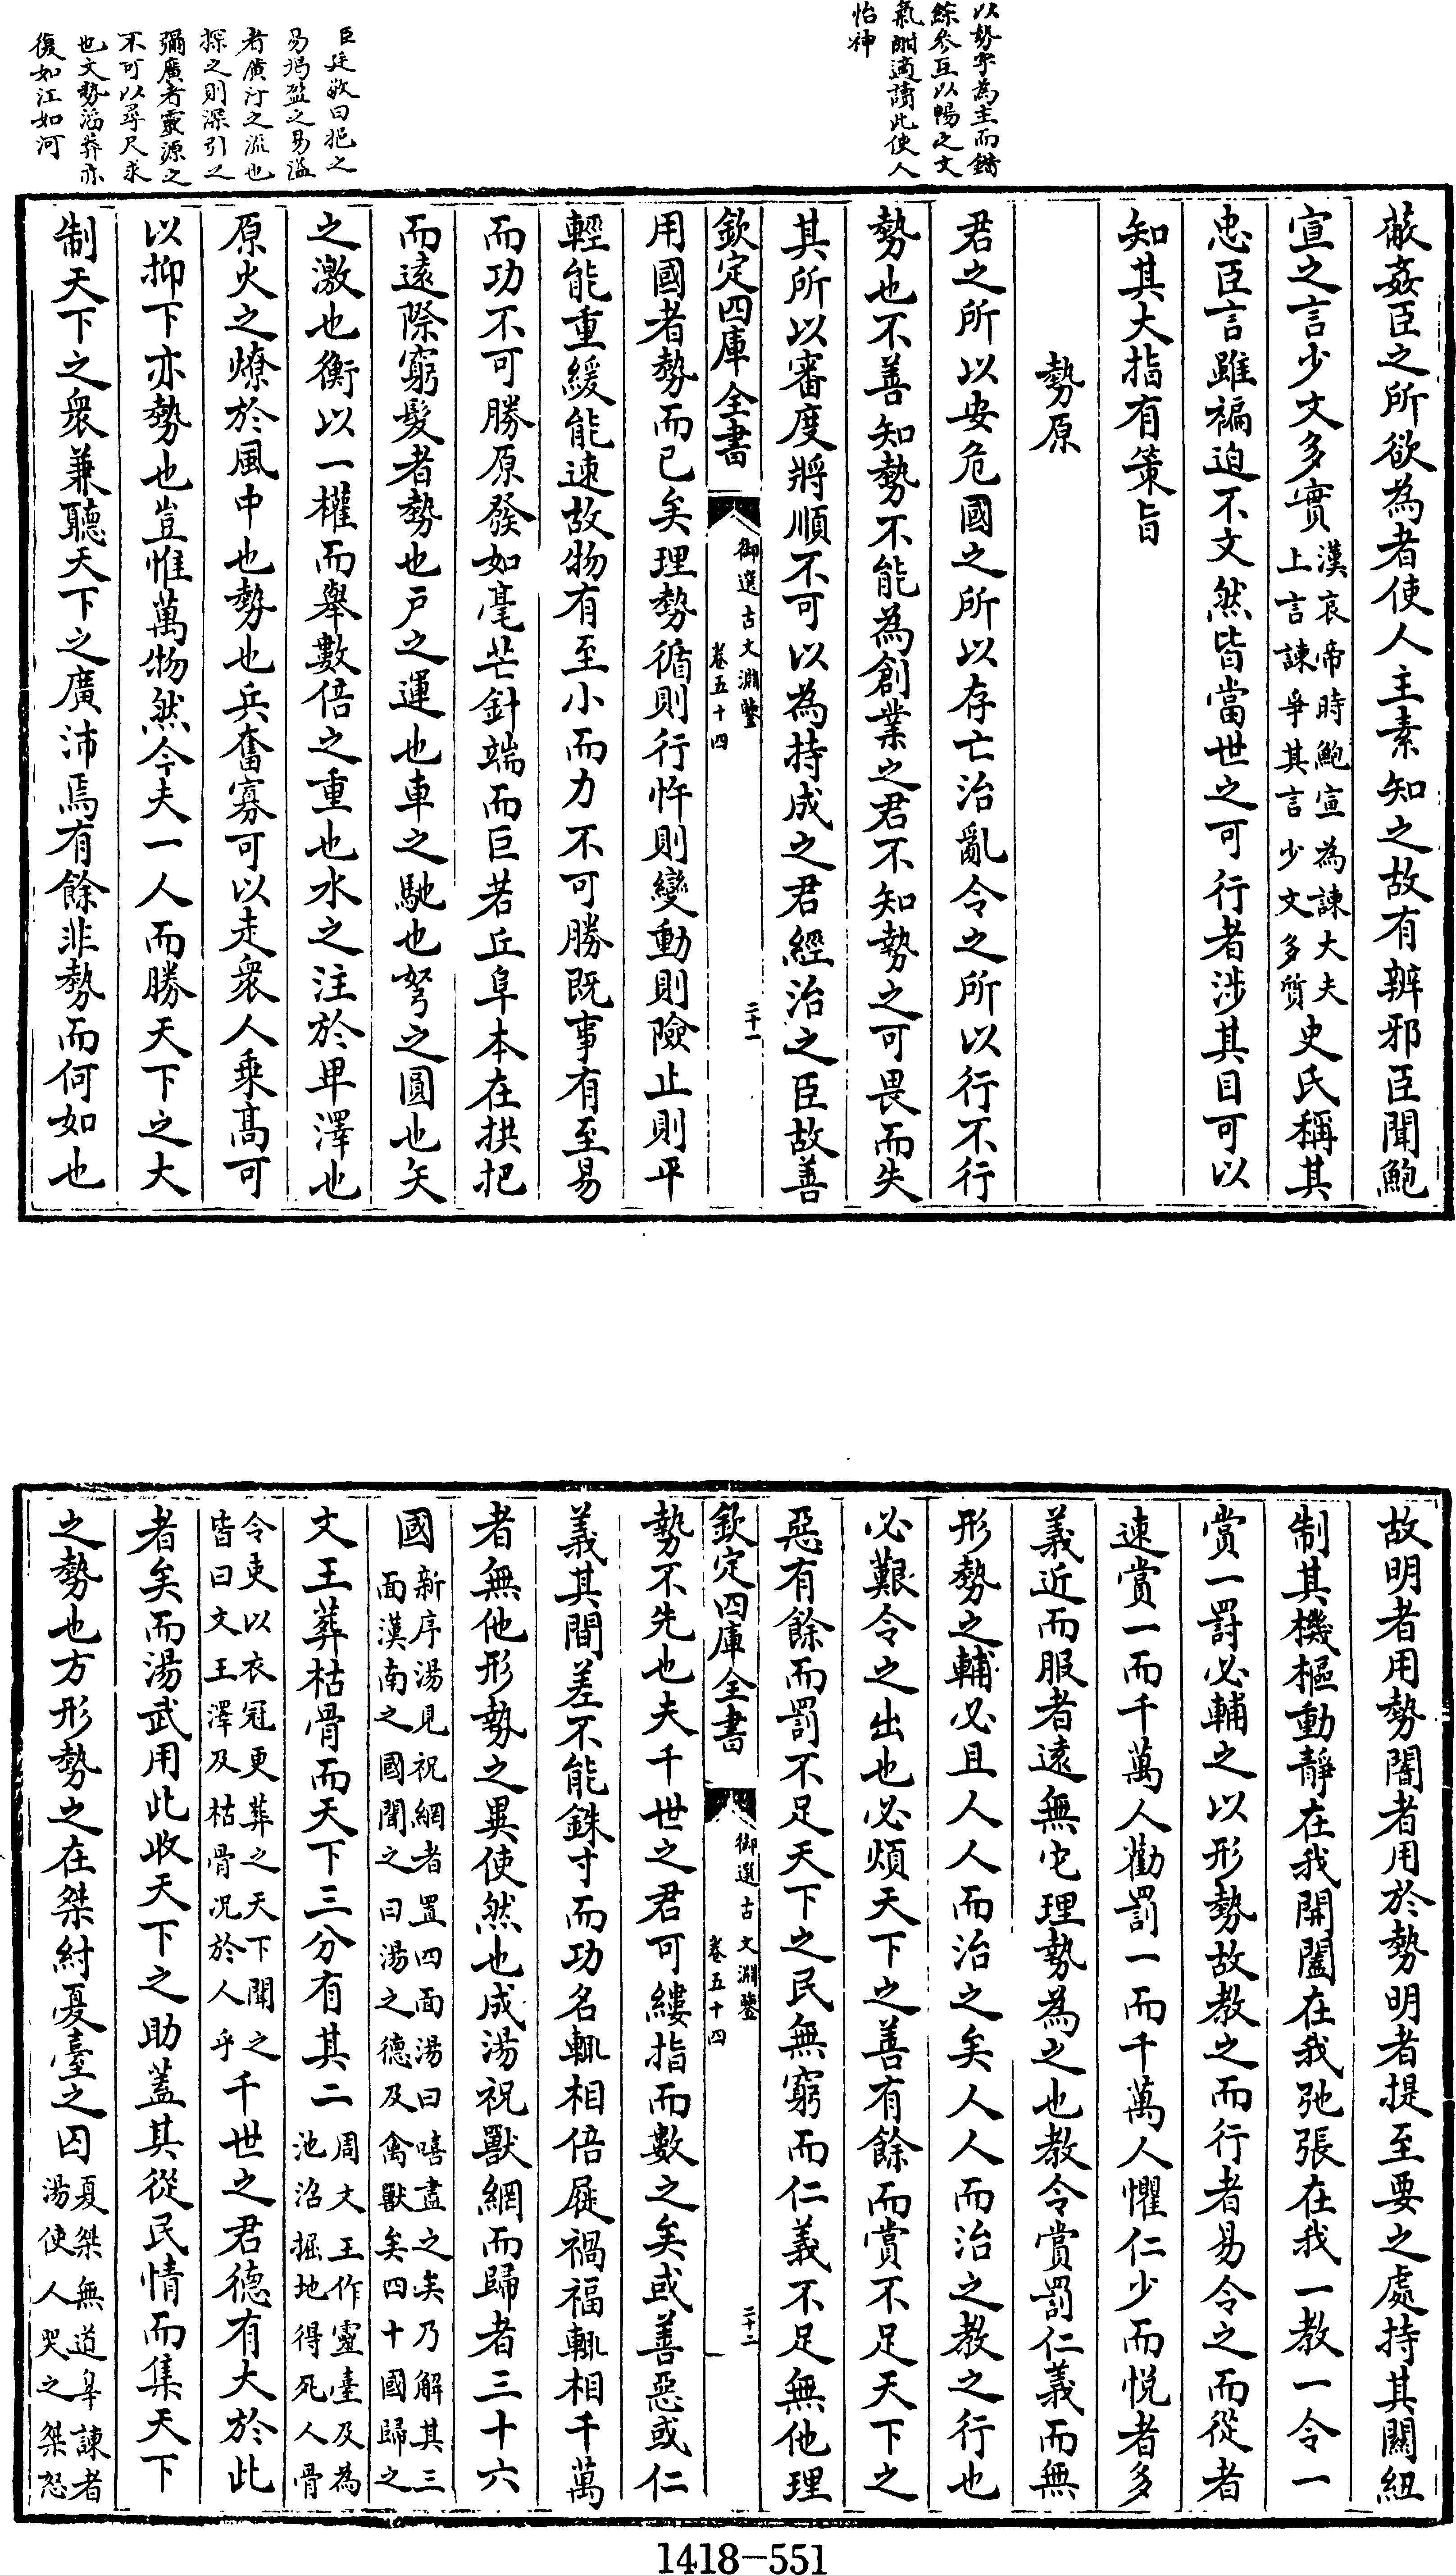 以勢字為主而錯
綜參互以暢之文
氣酣適讀此使人
怡神
臣廷敬曰挹之
易竭盈之易溢
者潢汙之流也
探之則深引之
彌廣者靈源之
不可以尋尺求
也文勢滔莽亦
復如江如河
蔽姦臣之所欲為者使人主素知之故有辨邪臣聞鮑
宣之言少文多實漢哀帝時鮑宣為諫大夫
上言諫爭其言少文多質史氏稱其
忠臣言雖褊迫不文然皆當世之可行者涉其目可以
知其大指有策旨
勢原
君之所以安危國之所以存亡治亂令之所以行不行
勢也不善知勢不能為創業之君不知勢之可畏而失
其所以審度將順不可以為持成之君經治之臣故善
欽定四庫全書
御選古文淵鑒
卷五十四
二十一
用國者勢而已矣理勢循則行忤則變動則險止則平
輕能重緩能速故物有至小而力不可勝既事有至易
而功不可勝原發如毫芒針端而巨若丘阜本在拱把
而遠際窮髮者勢也戸之運也車之馳也弩之圓也矢
之激也衡以一權而舉數倍之重也水之注於卑澤也
原火之燎於風中也勢也兵奮寡可以走衆人乗高可
以抑下亦勢也豈惟萬物然今夫一人而勝天下之大
制天下之衆兼聽天下之廣沛焉有餘非勢而何如也
故明者用勢闇者用於勢明者提至要之處持其關紐
制其機樞動靜在我開闔在我弛張在我一教一令一
賞一罰必輔之以形勢故教之而行者易令之而從者
速賞一而千萬人勸罰一而千萬人懼仁少而悦者多
義近而服者遠無它理勢為之也教令賞罰仁義而無
形勢之輔必且人人而治之矣人人而治之教之行也
必艱令之出也必煩天下之善有餘而賞不足天下之
惡有餘而罰不足天下之民無窮而仁義不足無他理
欽定四庫全書
御選古文淵鑒
卷五十四
二十二
勢不先也夫千世之君可縷指而數之矣或善惡或仁
義其間差不能銖寸而功名輒相倍屣禍福輒相千萬
者無他形勢之異使然也成湯祝獸網而歸者三十六
國新序湯見祝網者置四面湯曰嘻盡之矣乃解其三
面漢南之國聞之曰湯之德及禽獸矣四十國歸之
文王葬枯骨而天下三分有其二周文王作靈臺及為
池沼掘地得死人骨
令吏以衣冠更葬之天下聞之
皆曰文王澤及枯骨况於人乎千世之君德有大於此
者矣而湯武用此收天下之助蓋其從民情而集天下
之勢也方形勢之在桀紂憂臺之囚夏桀無道辠諫者
湯使人哭之桀怒
1418-551